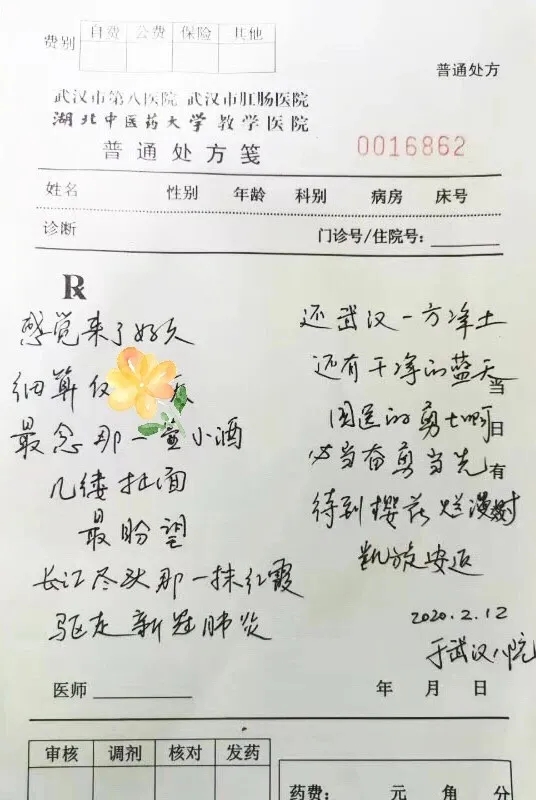 费别 自费 公费 保险 其他
普通处方
武汉市第八医院 武汉市肛肠医院
湖北中医药大学教学医院
普通处方笺
0016862
姓名 性别 年龄 科别 病房 床号
诊断 门诊号/住院号：
R
感觉来了好久
细算仅 天
最念那一壶小酒
几缕拉面
最盼望
长江尽头那一抹红霞
驱走新冠肺炎
还武汉一方净土
还有干净的蓝天
国医的勇士啊
必当奋勇当先
待到樱花烂漫时
凯旋安返
当日有
2020.2.12
于武汉八院
医师
年 月 日
审核 调剂 核对 发药
药费： 元 角 分